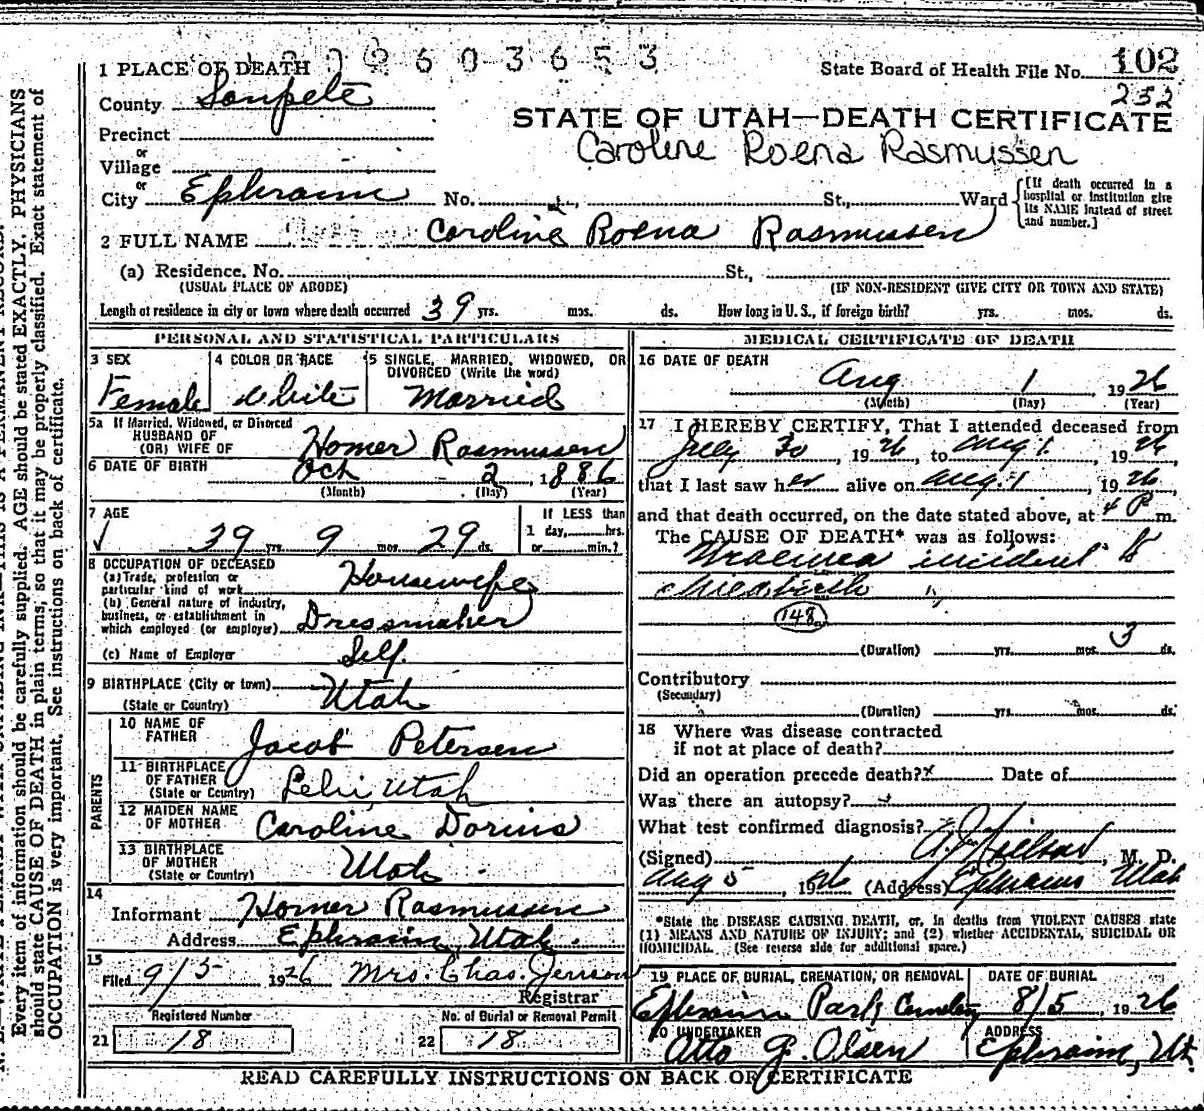 1 PLACE OF DEATH
6 0 3 6 5 3
State Board of Health File No. 102
232
County Sanpete
STATE OF UTAH—DEATH CERTIFICATE
Caroline Roena Rasmussen
Precinct
or
Village
or
City Ephraim No. St., Ward
[If death occurred in a hospital or institution give its NAME instead of street and number.]
2 FULL NAME Caroline Roena Rasmussen
(a) Residence. No. St.,
(USUAL PLACE OF ABODE) (IF NON-RESIDENT GIVE CITY OR TOWN AND STATE)
Length of residence in city or town where death occurred 39 yrs. mos. ds. How long in U. S., if foreign birth? yrs. mos. ds.
PERSONAL AND STATISTICAL PARTICULARS
3 SEX
Female
4 COLOR OR RACE
White
5 SINGLE, MARRIED, WIDOWED, OR
DIVORCED (Write the word)
Married
5a If Married, Widowed, or Divorced
HUSBAND OF
(OR) WIFE OF Homer Rasmussen
6 DATE OF BIRTH Oct 2, 1886
(Month) (Day) (Year)
7 AGE
39 yrs. 9 mos. 29 ds.
If LESS than
1 day, hrs.
or min.?
8 OCCUPATION OF DECEASED
(a) Trade, profession or
particular kind of work Housewife
(b) General nature of industry,
business, or establishment in
which employed (or employer) Dressmaker
(c) Name of Employer Self.
9 BIRTHPLACE (City or town)
(State or Country) Utah
PARENTS
10 NAME OF
FATHER Jacob Petersen
11 BIRTHPLACE
OF FATHER
(State or Country) Lehi, Utah
12 MAIDEN NAME
OF MOTHER Caroline Dorius
13 BIRTHPLACE
OF MOTHER
(State or Country) Utah.
14
Informant Homer Rasmussen
Address Ephraim, Utah.
15
Filed 9/5 1926 Mrs. Chas. Jenson
Registrar
Registered Number
21 18
No. of Burial or Removal Permit
22 18
MEDICAL CERTIFICATE OF DEATH
16 DATE OF DEATH
Aug 1 1926
(Month) (Day) (Year)
17 I HEREBY CERTIFY, That I attended deceased from
July 30, 1926, to Aug 1., 1926,
that I last saw her alive on Aug. 1, 1926,
and that death occurred, on the date stated above, at 4 P m.
The CAUSE OF DEATH* was as follows:
Uraemea incident to
childbirth
148
(Duration) yrs. mos. 3 ds.
Contributory
(Secondary)
(Duration) yrs. mos. ds.
18 Where was disease contracted
if not at place of death?
Did an operation precede death? Date of
Was there an autopsy?
What test confirmed diagnosis?
(Signed) , M. D.
Aug 5, 1926 (Address) Ephraim Utah
*State the DISEASE CAUSING DEATH, or, in deaths from VIOLENT CAUSES state
(1) MEANS AND NATURE OF INJURY; and (2) whether ACCIDENTAL, SUICIDAL OR
HOMICIDAL. (See reverse side for additional space.)
19 PLACE OF BURIAL, CREMATION, OR REMOVAL
Ephraim Park Cemetery
DATE OF BURIAL
8/5, 1926
20 UNDERTAKER
Otto J. Olsen
ADDRESS
Ephraim, Ut.
READ CAREFULLY INSTRUCTIONS ON BACK OF CERTIFICATE
Every item of information should be carefully supplied. AGE should be stated EXACTLY. PHYSICIANS
should state CAUSE OF DEATH in plain terms, so that it may be properly classified. Exact statement of
OCCUPATION is very important. See instructions on back of certificate.